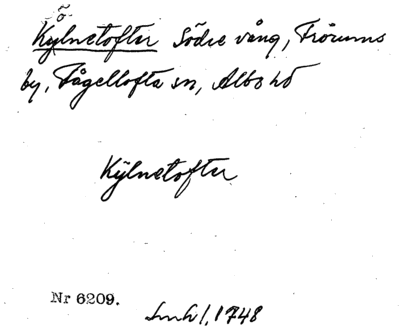 õ
Kÿlnetofter Södre vång, Fröums
by, Fågeltofta sn, Albo hd
Kÿlnetofter
Nr 6209.
Lmh 1, 1748